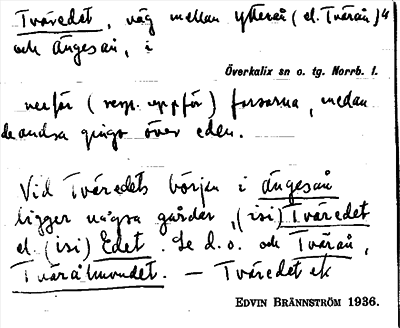 Tväredet, väg mellan ytterån (el. Tvärån)
och Ängesån, i
Överkalix sn o. tg. Norrb. l.
nerför (resp. uppför) forsarna, medan
de andra gingo över eden.
Vid Tväredets början i Ängesån
ligger några gårdar, (isi) Tväredet
el. (isi) Edet. Se d. o. och Tvärån,
Tvärålmundet. — Tväredet
EDVIN BRÄNNSTRÖM 1936.